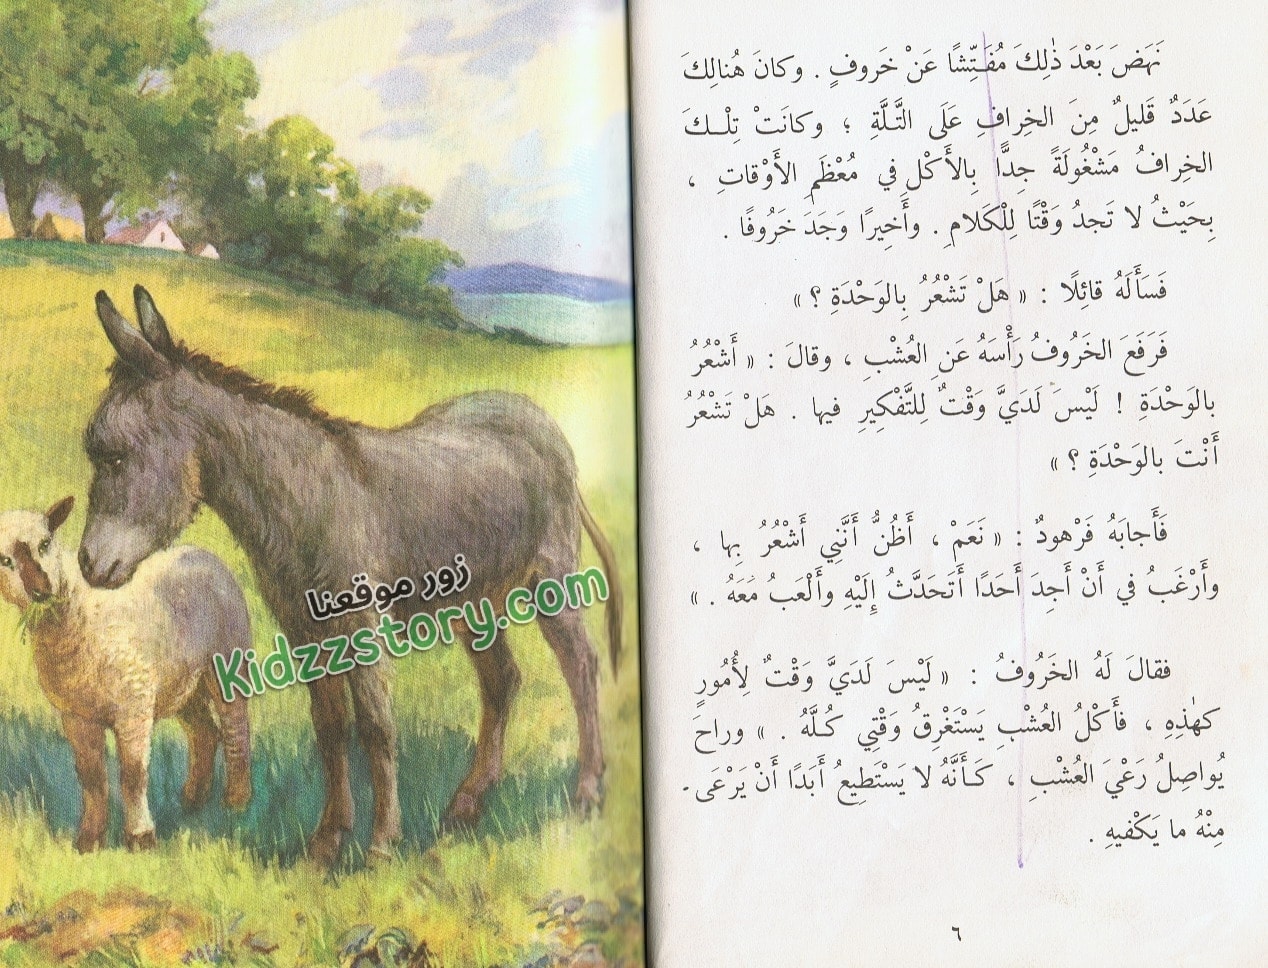 نَهَضَ بَعْدَ ذٰلِكَ مُفَتِّشًا عَنْ خَروفٍ . وكانَ هُنالِكَ
عَدَدٌ قَليلٌ مِنَ الخِرافِ عَلَى التَّلَّةِ ؛ وكانَتْ تِلْكَ
الخِرافُ مَشْغُولَةً جِدًّا بِالأَكْلِ في مُعْظَمِ الأَوْقاتِ ،
بِحَيْثُ لا تَجدُ وَقْتًا لِلْكَلامِ . وأَخِيرًا وَجَدَ خَرُوفًا .
فَسَأَلَهُ قائِلًا : « هَلْ تَشْعُرُ بِالوَحْدَةِ ؟ »
فَرَفَعَ الخَرُوفُ رَأْسَهُ عَنِ العُشْبِ ، وقالَ : « أَشْعُرُ
بالوَحْدَةِ ! لَيْسَ لَدَيَّ وَقْتٌ لِلتَّفْكِيرِ فيها . هَلْ تَشْعُرُ
أَنْتَ بالوَحْدَةِ ؟ »
فَأَجابَهُ فَرْهودٌ : « نَعَمْ ، أَظُنُّ أَنَّنِي أَشْعُرُ بِها ،
وأَرْغَبُ في أَنْ أَجِدَ أَحَدًا أَتَحَدَّثُ إِلَيْهِ وأَلْعَبُ مَعَهُ . »
فقالَ لَهُ الخَرُوفُ : « لَيْسَ لَدَيَّ وَقْتٌ لِأُمُورٍ
كهٰذِهِ ، فأَكْلُ العُشْبِ يَسْتَغْرِقُ وَقْتِي كُلَّهُ . » وراحَ
يُواصِلُ رَعْيَ العُشْبِ ، كَأَنَّهُ لا يَسْتَطِيعُ أَبَدًا أَنْ يَرْعَى
مِنْهُ ما يَكْفيهِ .
٦
زور موقعنا
Kidzzstory.com